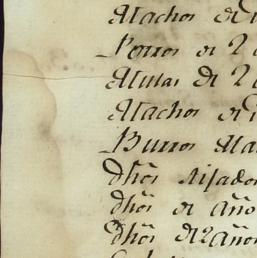 Machos de
Potros de 2
Mulas de 2
Machos de
Burros Ma
dhos. hijados
dhos. de año
dhos. de 2 años